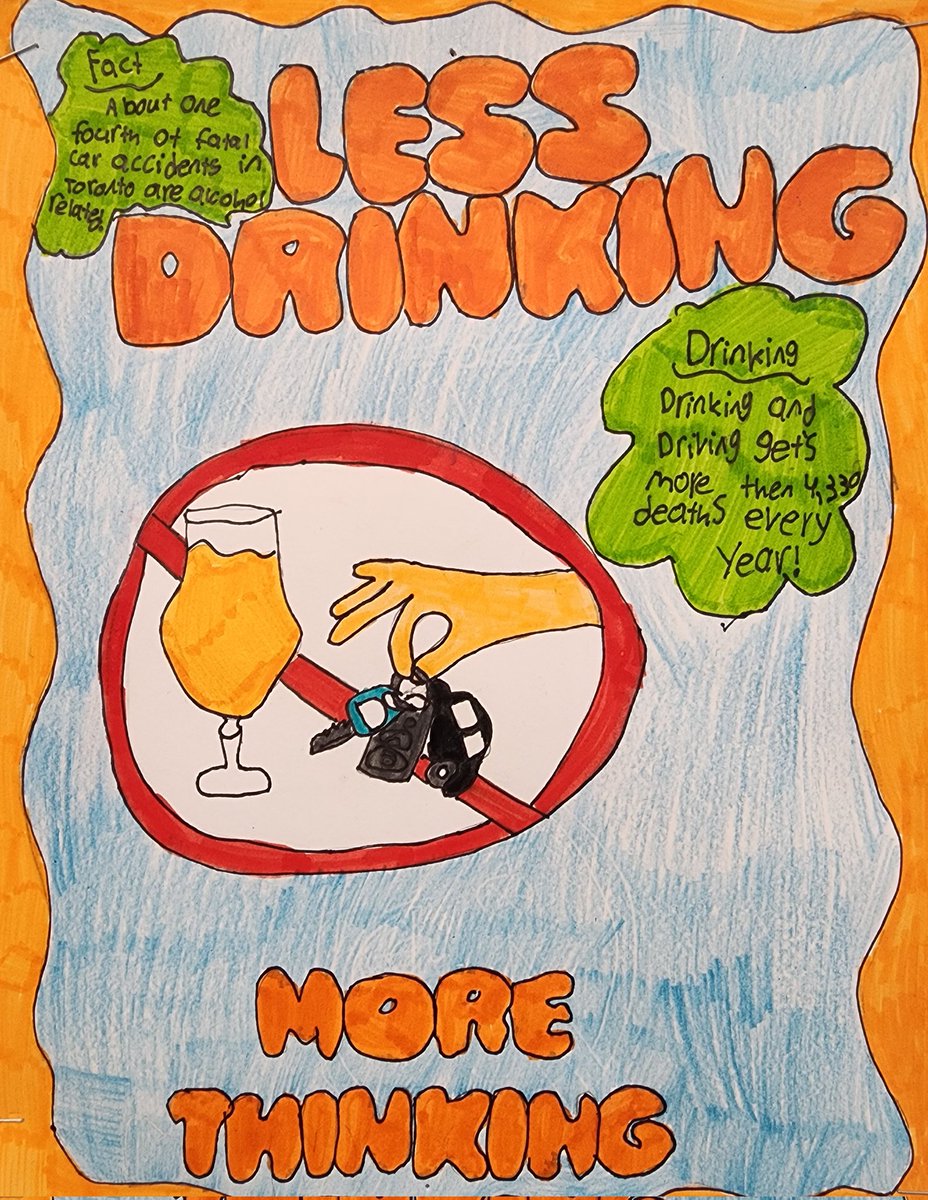 Fact
About one
fourth of fatal
car accidents in
Toranto are alcohol
related
LESS
DRINKING
Drinking
Drinking and
Driving gets
more then 4,330
deaths every
Year!
MORE
THINKING